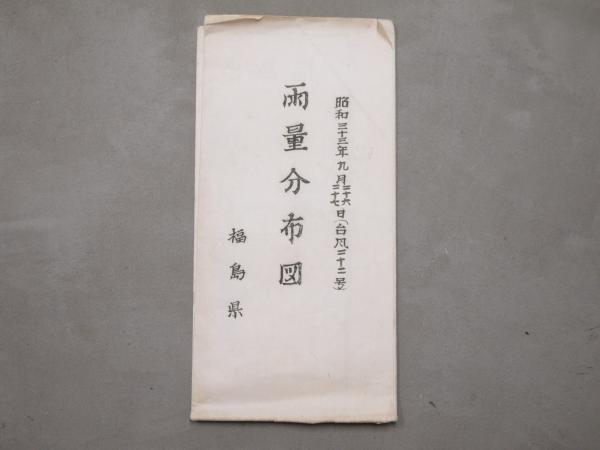 昭和三十三年九月二十六二十七日(台風二十二号)
雨量分布図
福島県